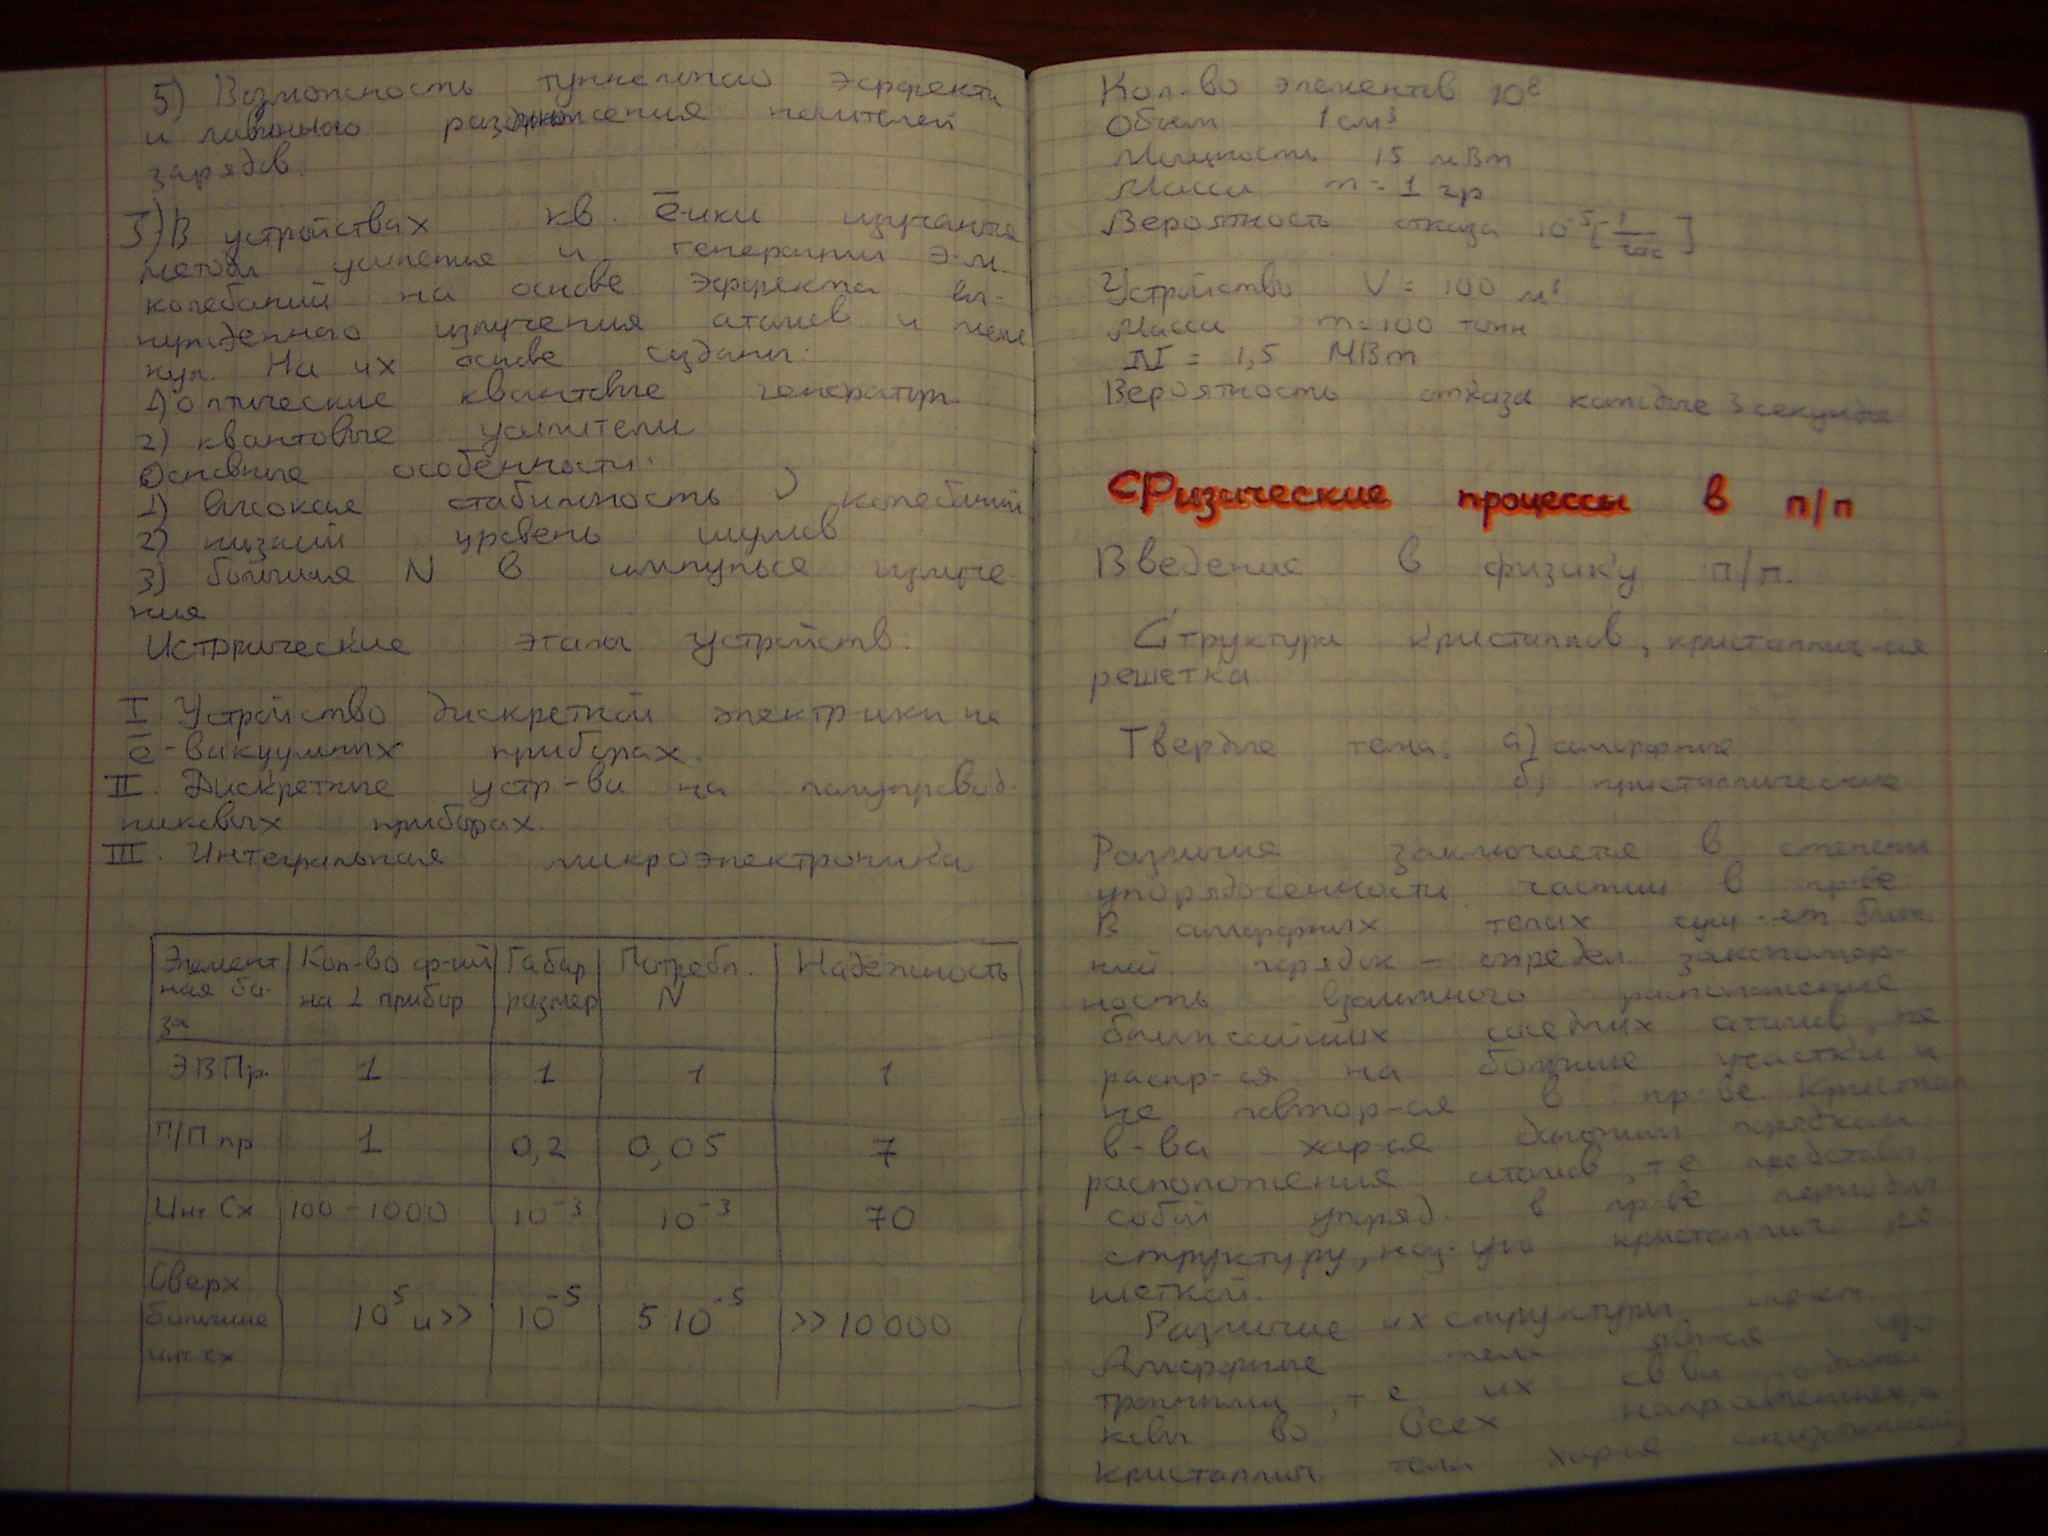 5) Возможность туннельного эффекта
и лавинного размножения носителей
зарядов.
3) В устройствах кв. ē-ики изучаются
методы усиления и генерации э.м.
колебаний на основе эффекта вы-
нужденного излучения атомов и моле
кул. На их основе созданы:
1) оптические квантовые генераторы
2) квантовые усилители
Основные особенности:
1) высокая стабильность υ колебаний
2) низкий уровень шумов
3) большая N в импульсе излуче-
ния
Исторические этапы устройств.
I Устройство дискретной электр-ики на
ē-вакуумных приборах.
II. Дискретные устр-ва на полупровод-
никовых приборах.
III. Интегральная микроэлектроника
Элемент Кол-во ф-ий Габар Потребл. Надёжность
ная ба- на 1 прибор размер N
за
ЭВПр. 1 1 1 1
П/П пр 1 0,2 0,05 7
Инт Сх 100-1000 10⁻³ 10⁻³ 70
Сверх
большие 10⁵ и >> 10⁻⁵ 5·10⁻⁵ >>10000
инт сх
Кол-во элементов 10⁸
Объем 1 см³
Мощность 15 мВт
Масса m = 1 гр
Вероятность отказа 10⁻⁵ [1/час]
Устройство V = 100 м³
Масса m=100 тонн
N = 1,5 МВт
Вероятность отказа каждые 3 секунды
Физические процессы в п/п
Введение в физику п/п.
Структура кристаллов, кристаллич-ая
решетка
Твердые тела: а) аморфные
б) кристаллические
Различие заключается в степени
упорядоченности частиц в пр-ве
В аморфных телах сущ-ет ближ
ний порядок - определ. закономер-
ность взаимного расположения
ближайших соседних атомов, не
распр-ся на большие участки и
не повтор-ся в пр-ве. Кристал
в-ва хар-ся дальним порядком
расположения атомов, т.е. представл
собой упоряд. в пр-ве периодич
структуру, наз-ую кристаллич. ре
шеткой.
Различие их структуры
Аморфные тела явл-ся изо
тропными, т е их св ва одина
ковы во всех направлениях, а
кристаллич тела хар-ся анизотропией